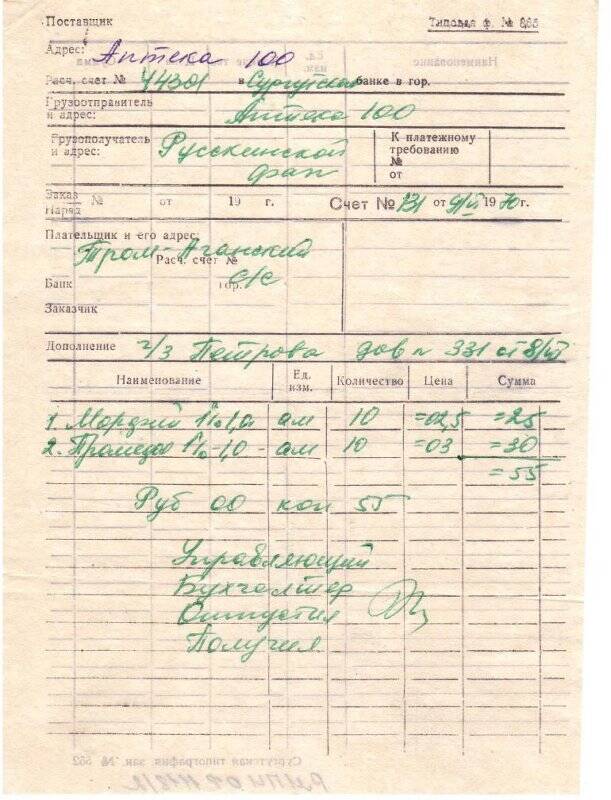 Поставщик Типовая ф. № 868
Адрес: Аптека 100
Расч. счет № 44301 в Сургутском банке в гор.
Грузоотправитель и адрес: Аптека 100
Грузополучатель и адрес: Русскинской фап
К платежному требованию
№
от
Заказ
Наряд № от 19 г. Счет № 131 от 9/VI 1970 г.
Плательщик и его адрес:
Тром-Аганский с/с
Расч. счет №
Банк гор.
Заказчик
Дополнение ч/з Петрова дов № 331 от 8/VI
Наименование Ед. изм. Количество Цена Сумма
1. Морфий 1% 1,0 ам 10 =02,5 =25
2. Промедол 1% -1,0 - ам 10 =03 =30
=55
Руб 00 коп 55
Управляющий
Бухгалтер
Отпустил
Получил
Сургутская типография зак. № 552